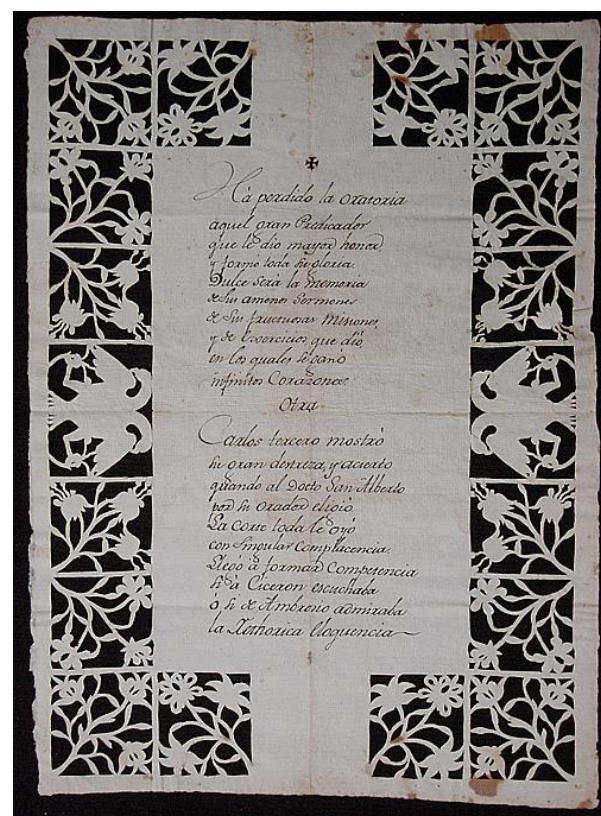 Há perdido la oratoria
aquel gran Predicador
que le dio mayor honor
y formó toda su gloria.
Dulce será la memoria
de sus amenos Sermones
de sus fructuosas Misiones,
y de Exercicios que dió,
en los quales se ganó
infinitos Corazones.
Otra
Carlos tercero mostró
su gran destreza, y acierto
quando al Docto San Alberto
por su orador eligió.
La corte toda le oyó
con singular complacencia.
Llegó á formar Competencia
si à Ciceron escuchaba
o si de Ambrosio admiraba
la Rethorica Eloquencia